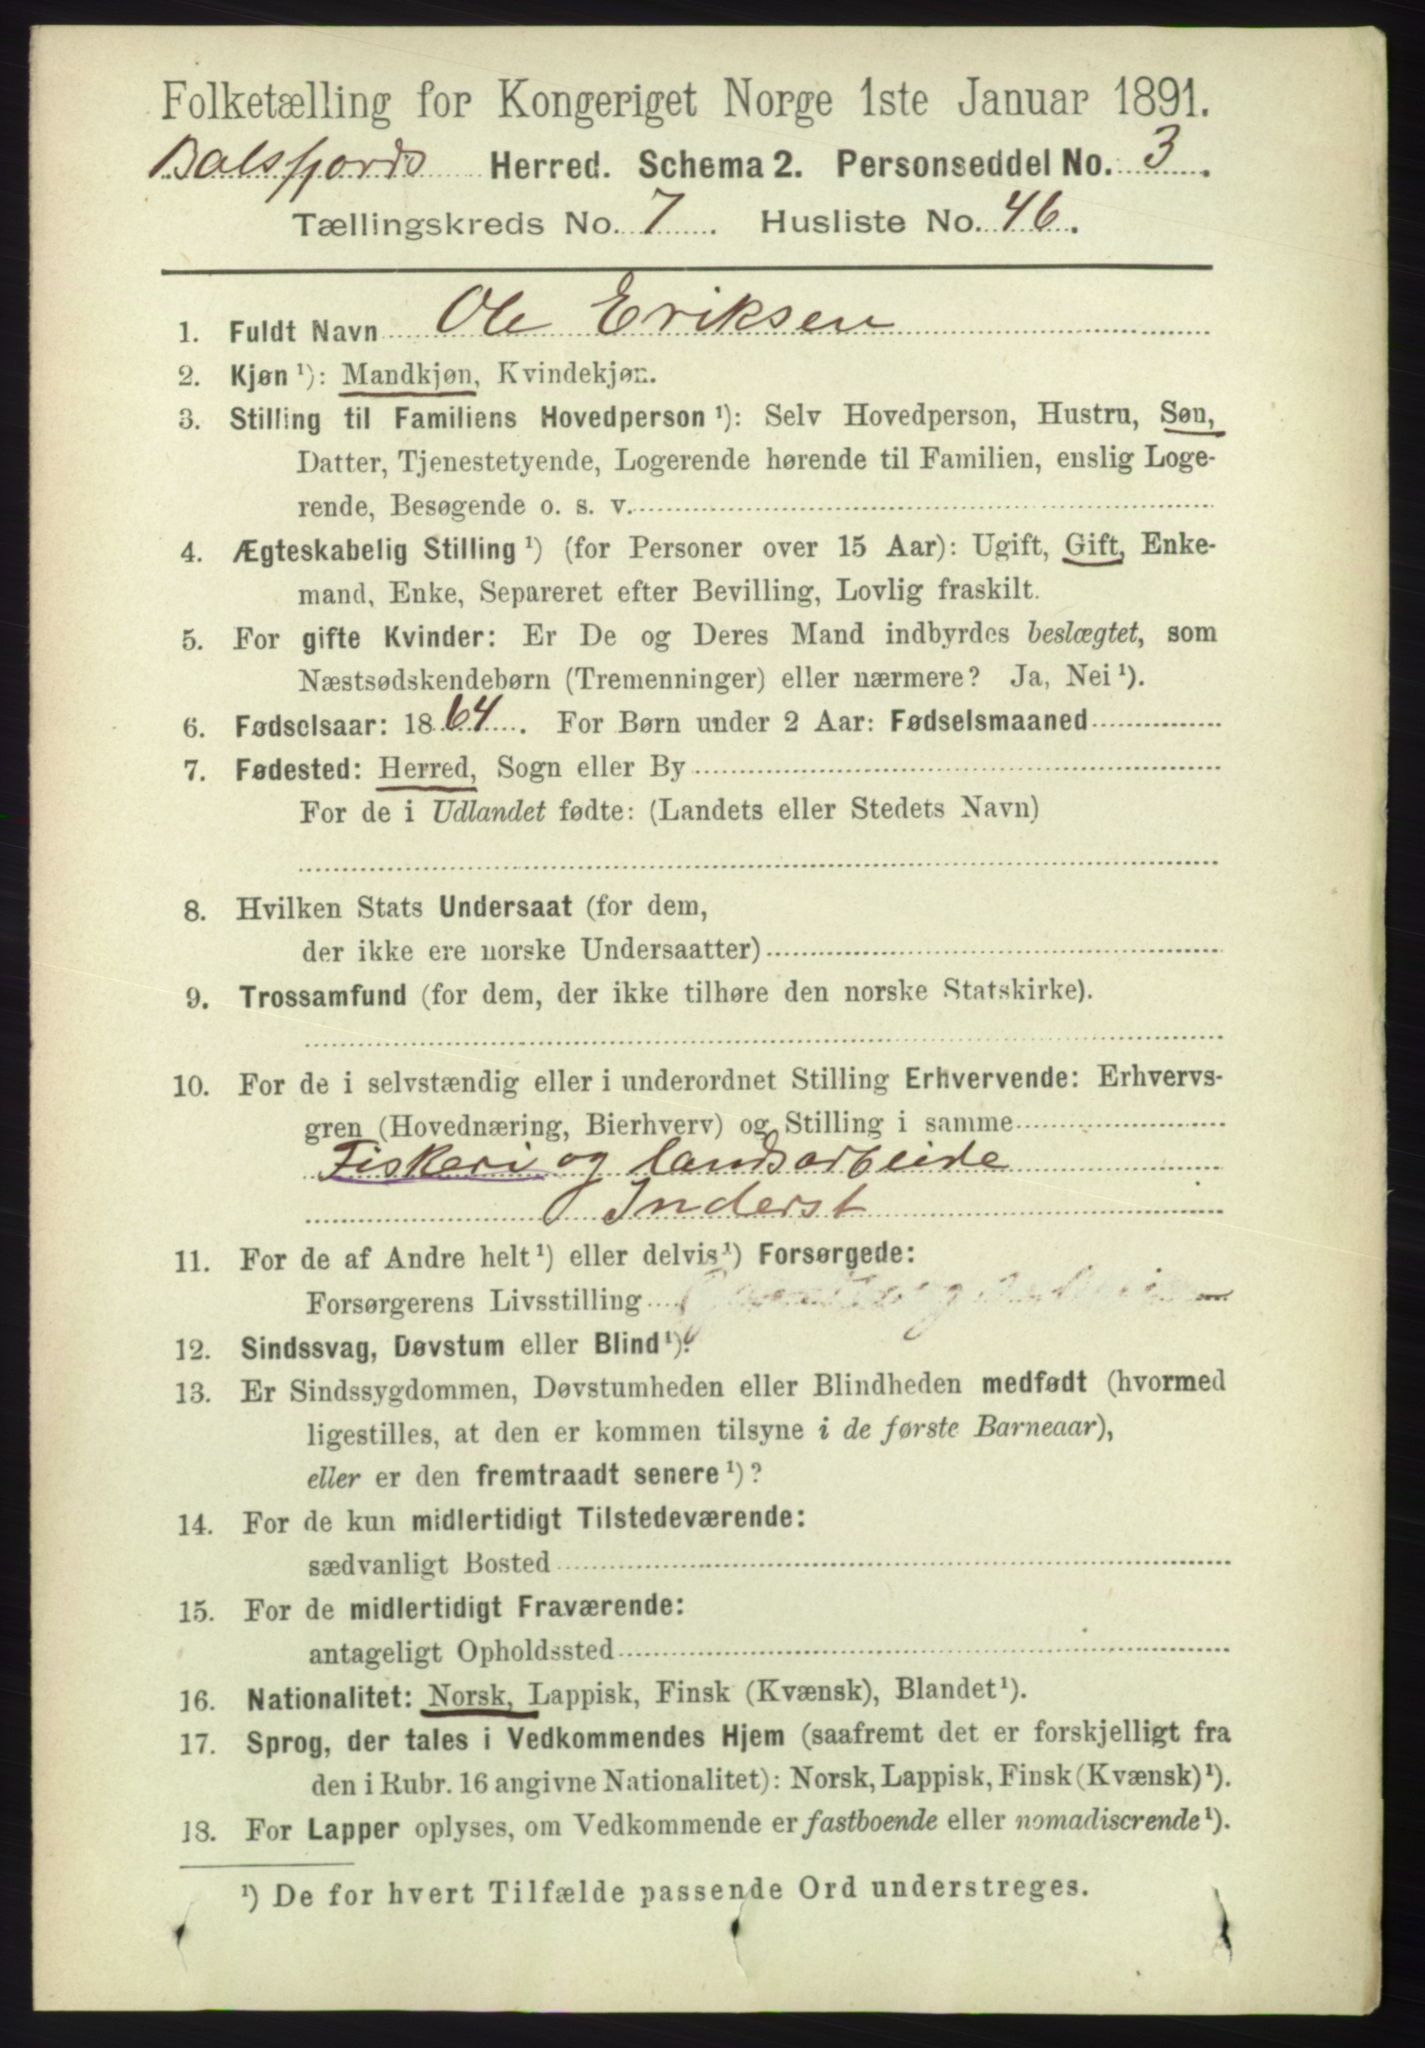 Folketælling for Kongeriget Norge 1ste Januar 1891.
Balsfjords Herred. Schema 2. Personseddel No. 3.
Tællingskreds No. 7. Husliste No. 46.
1. Fuldt Navn Ole Eriksen
2. Kjøn ¹): Mandkjøn, Kvindekjøn.
3. Stilling til Familiens Hovedperson ¹): Selv Hovedperson, Hustru, Søn,
Datter, Tjenestetyende, Logerende hørende til Familien, enslig Loge-
rende, Besøgende o. s. v.
4. Ægteskabelig Stilling ¹) (for Personer over 15 Aar): Ugift, Gift, Enke-
mand, Enke, Separeret efter Bevilling, Lovlig fraskilt.
5. For gifte Kvinder: Er De og Deres Mand indbyrdes beslægtet, som
Næstsødskendebørn (Tremenninger) eller nærmere? Ja, Nei ¹).
6. Fødselsaar: 1864. For Børn under 2 Aar: Fødselsmaaned
7. Fødested: Herred, Sogn eller By
For de i Udlandet fødte: (Landets eller Stedets Navn)
8. Hvilken Stats Undersaat (for dem,
der ikke ere norske Undersaatter)
9. Trossamfund (for dem, der ikke tilhøre den norske Statskirke).
10. For de i selvstændig eller i underordnet Stilling Erhvervende: Erhvervs-
gren (Hovednæring, Bierhverv) og Stilling i samme
Fiskeri og landsarbeide
Inderst
11. For de af Andre helt ¹) eller delvis ¹) Forsørgede:
Forsørgerens Livsstilling
12. Sindssvag, Døvstum eller Blind ¹)?
13. Er Sindssygdommen, Døvstumheden eller Blindheden medfødt (hvormed
ligestilles, at den er kommen tilsyne i de første Barneaar),
eller er den fremtraadt senere ¹)?
14. For de kun midlertidigt Tilstedeværende:
sædvanligt Bosted
15. For de midlertidigt Fraværende:
antageligt Opholdssted
16. Nationalitet: Norsk, Lappisk, Finsk (Kvænsk), Blandet ¹).
17. Sprog, der tales i Vedkommendes Hjem (saafremt det er forskjelligt fra
den i Rubr. 16 angivne Nationalitet): Norsk, Lappisk, Finsk (Kvænsk) ¹).
18. For Lapper oplyses, om Vedkommende er fastboende eller nomadiserende ¹).
¹) De for hvert Tilfælde passende Ord understreges.